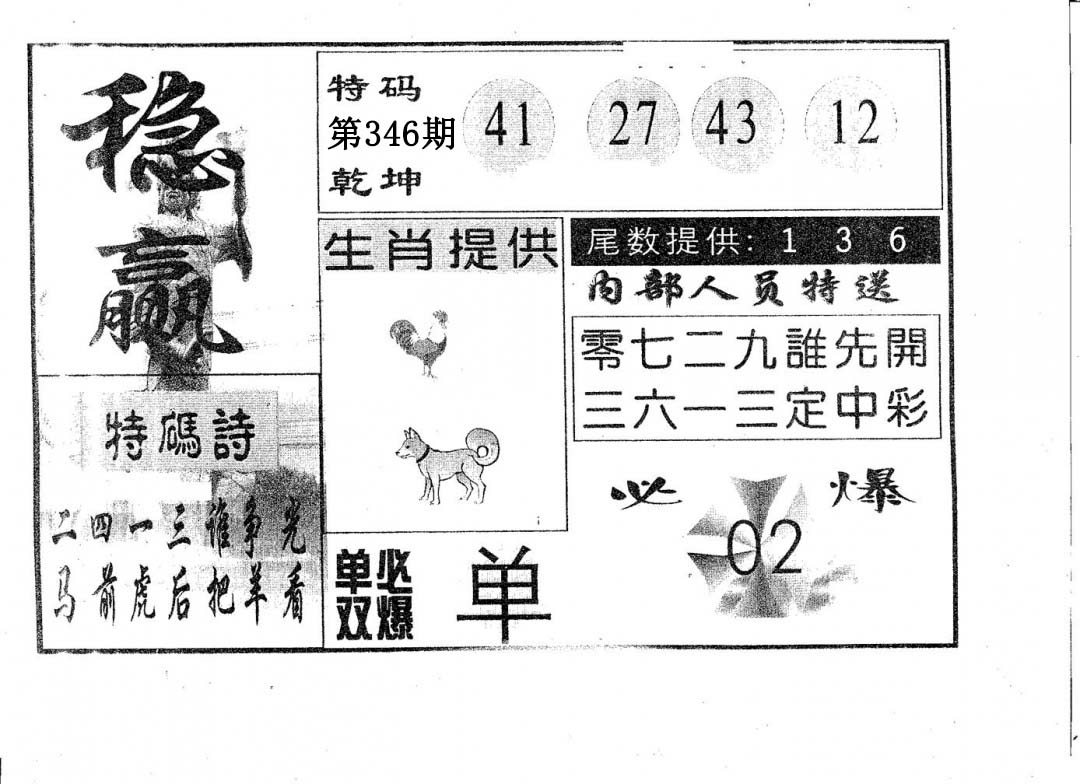 稳赢
特码
第346期
乾坤
41 27 43 12
特碼詩
二四一三谁争光
马前虎后把羊看
生肖提供
单双必爆
单
尾数提供：1 3 6
内部人员特送
零七二九誰先開
三六一三定中彩
必爆
02